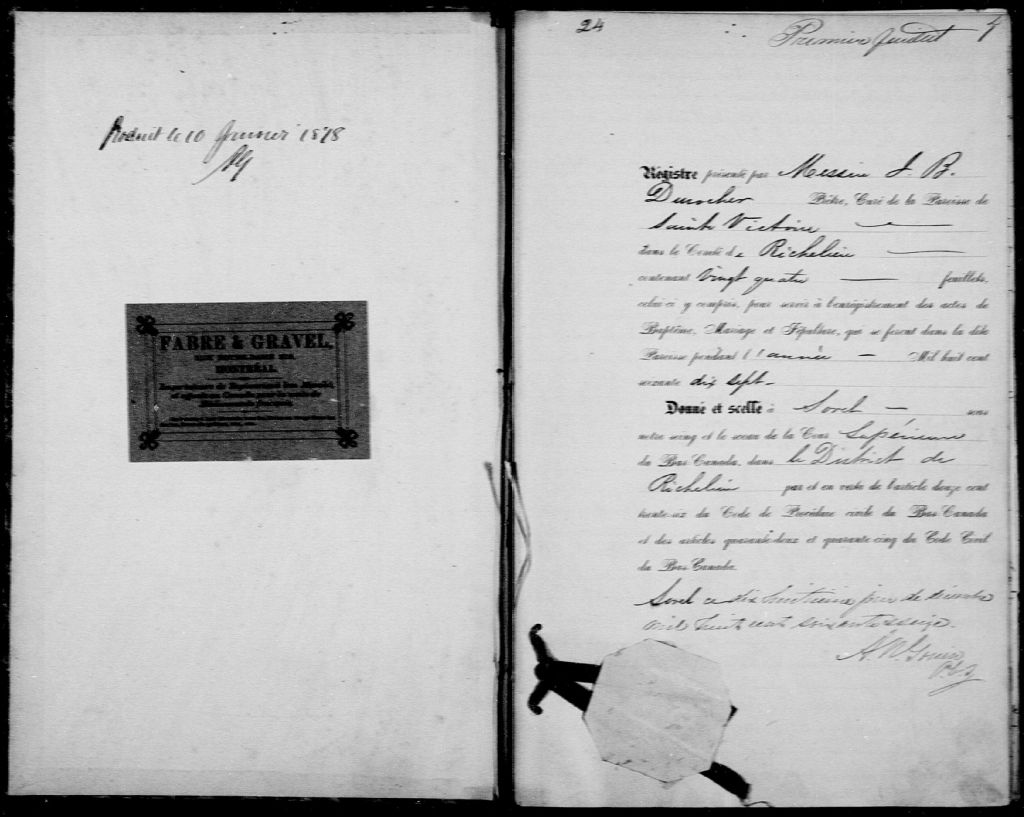 Produit le 10 janvier 1878
AG
FABRE & GRAVEL,
RUE NOTRE-DAME 219,
MONTRÉAL.
24
Premier feuillet
Registre présenté par Messire J. B.
Durocher Prêtre, Curé de la Paroisse de
Sainte Victoire
dans le Comté de Richelieu
contenant vingt quatre feuillets,
celui-ci y compris, pour servir à l'enregistrement des actes de
Baptême, Mariage et Sépulture, qui se feront dans la dite
Paroisse pendant l'année Mil huit cent
soixante dix sept
Donné et scellé à Sorel sous
notre seing et le sceau de la Cour Supérieure
du Bas-Canada, dans le District de
Richelieu par et en vertu de l'article douze cent
trente-six du Code de Procédure civile du Bas-Canada
et des articles quarante-deux et quarante-cinq du Code Civil
du Bas-Canada.
Sorel ce dix huitieme jour de décembre
mil huit cent soixante seize.
A. N. Gouin
P.C.S.